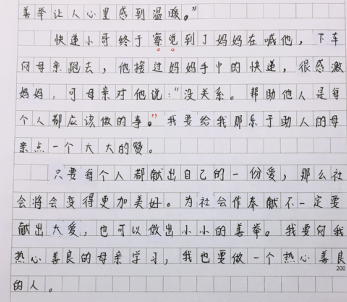 善举让人心里感到温暖。"
快递小哥终于察觉到了妈妈在喊他，下车
向母亲跑去，他接过妈妈手中的快递，很感激
妈妈，可母亲对他说："没关系。帮助他人是每
个人都应该做的事。"我要给我那乐于助人的母
亲点一个大大的赞。
只要每个人都献出自己的一份爱，那么社
会将会变得更加美好。为社会作奉献不一定要
献出大爱，也可以做出小小的善举。我要向我
热心善良的母亲学习，我也要做一个热心善良
200
的人。